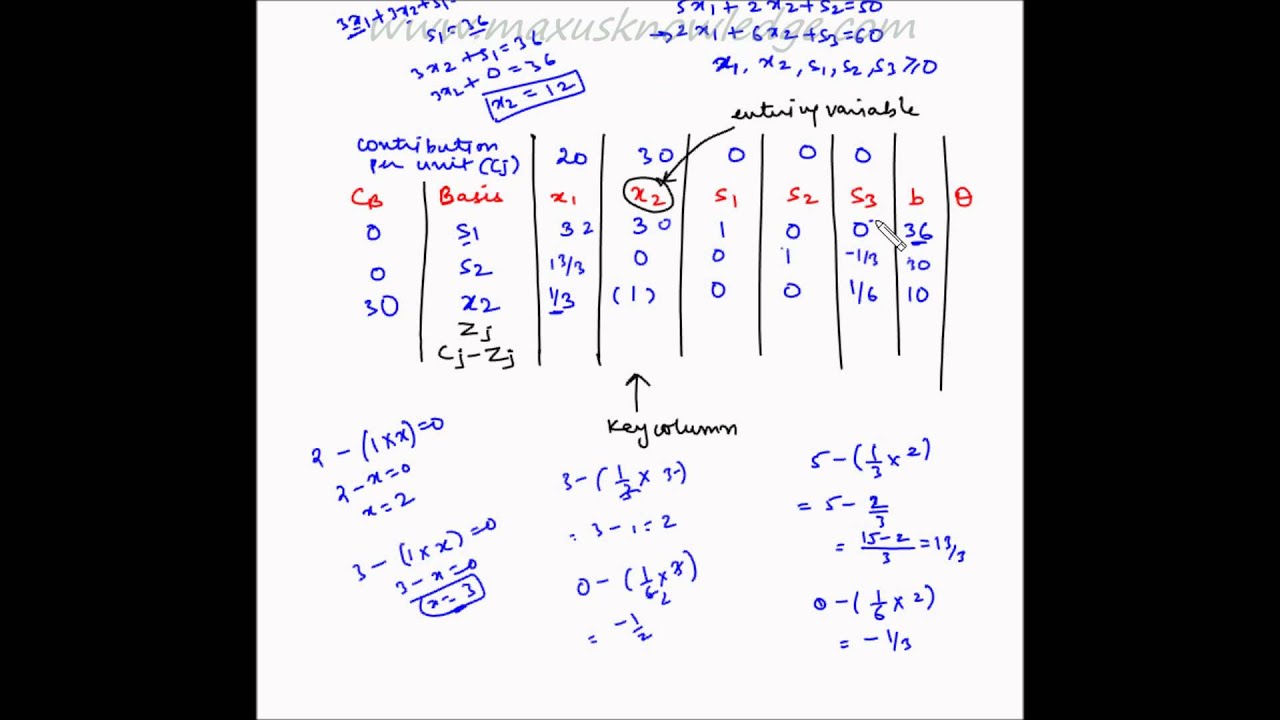 3x1+3x2+s1
s1=36
3x2+s1=36
3x2+0=36
x2=12
5x1+2x2+s2=50
→2x1+6x2+s3=60
x1, x2, s1, s2, s3 ≥0
www.maxusknowledge.com
entering variable
contribution per unit (Cj) 20 30 0 0 0
CB Basis x1 x2 s1 s2 s3 b θ
0 s1 3 2 3 0 1 0 0 36
0 s2 13/3 0 0 1 -1/3 30
30 x2 1/3 (1) 0 0 1/6 10
Zj
Cj-Zj
key column
2-(1×x)=0
2-x=0
x=2
3-(1×x)=0
3-x=0
x=3
3-(1/3×3)
= 3-1=2
0-(1/6×3)
2
= -1/2
5-(1/3×2)
= 5-2/3
= 15-2/3=13/3
0-(1/6×2)
= -1/3